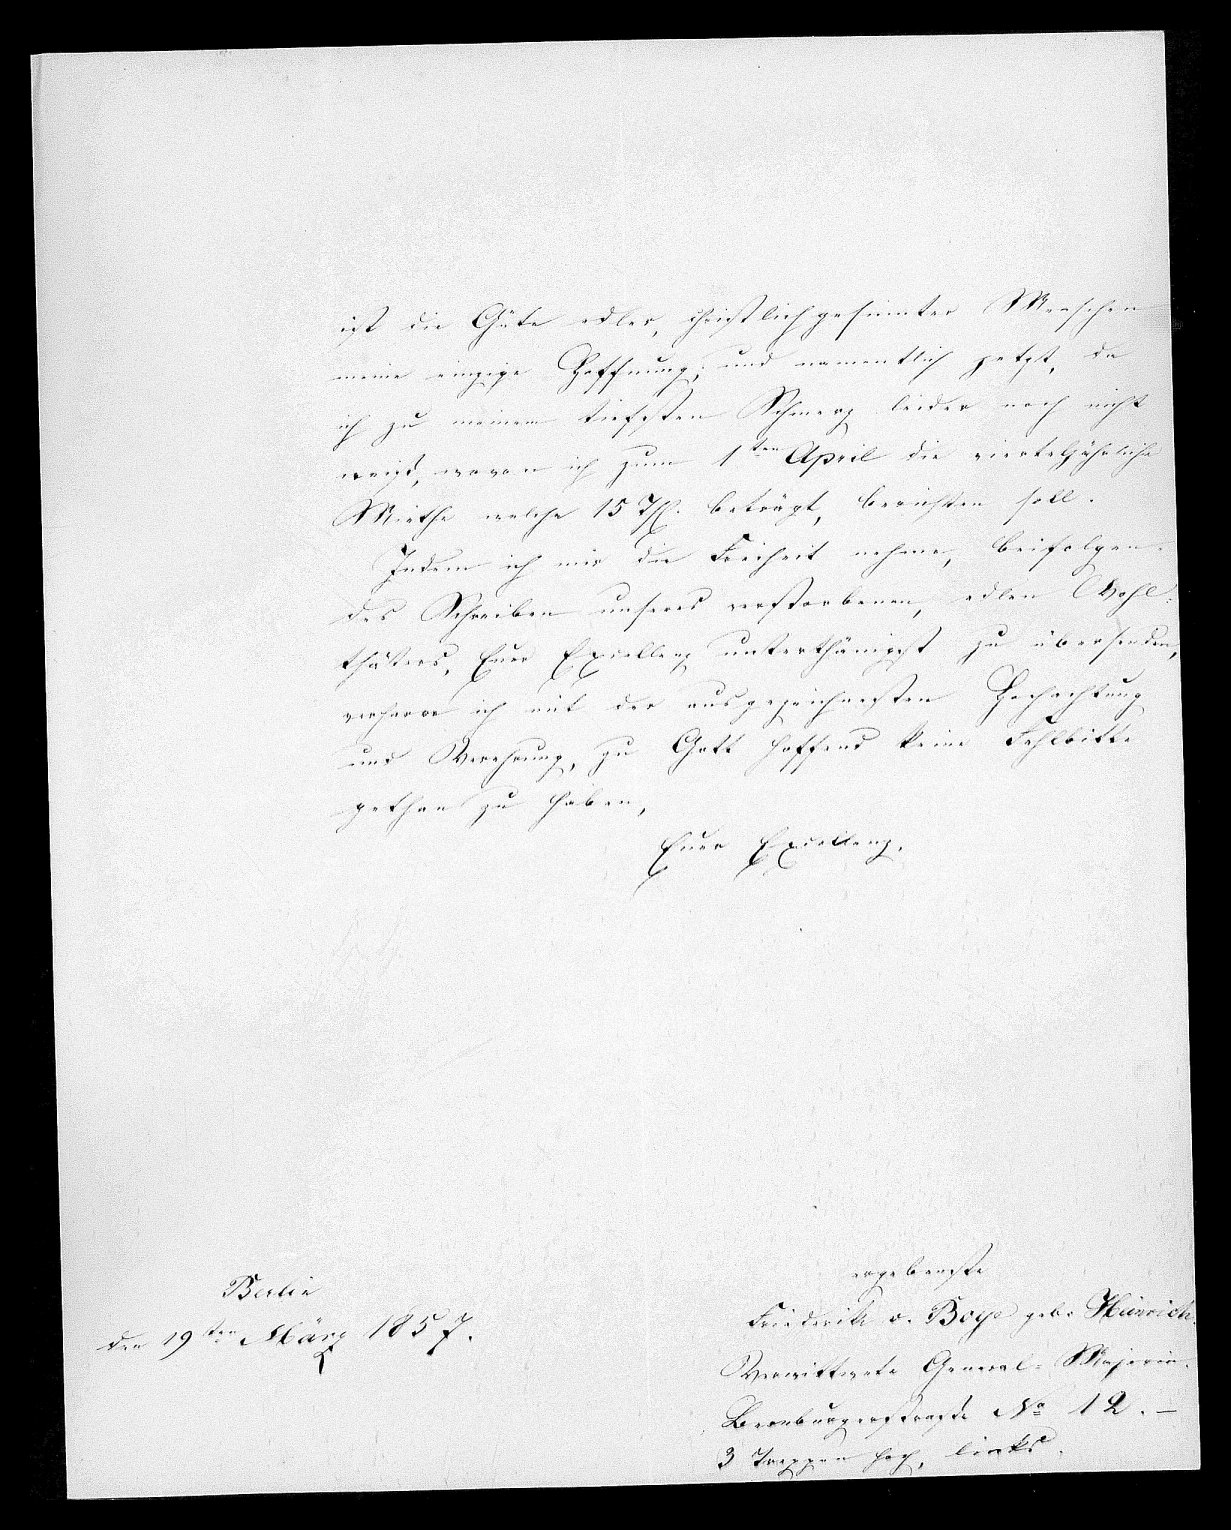 ist die Güte edler, christlichgesinnter Menschen
meine einzige Hoffnung, und namentlich jetzt, da
ich zu meinem tiefsten Schmerz leider noch nicht
weiß, wovon ich zum 1ten April die vierteljährliche
Miethe welche 15 Th. beträgt, berichten soll.
Indem ich mir die Freiheit nehme, beifolgen-
des Schreiben unseres verstorbenen, edlen Wohl-
thäters, Euer Excellenz unterthänigst zu übersenden,
verharre ich mit der ausgezeichnesten Hochachtung
und Verehrung, zu Gott hoffend keine Fehlbitte
gethan zu haben,
Euer Excellenz,
ergebenste
Berlin
den 19ten März 1857.
Friederike v. Boye geb. Hinrich.
Verwittwete General-Majorin.
Bernburgerstraße No 12.—
3 Treppen hoch, links.